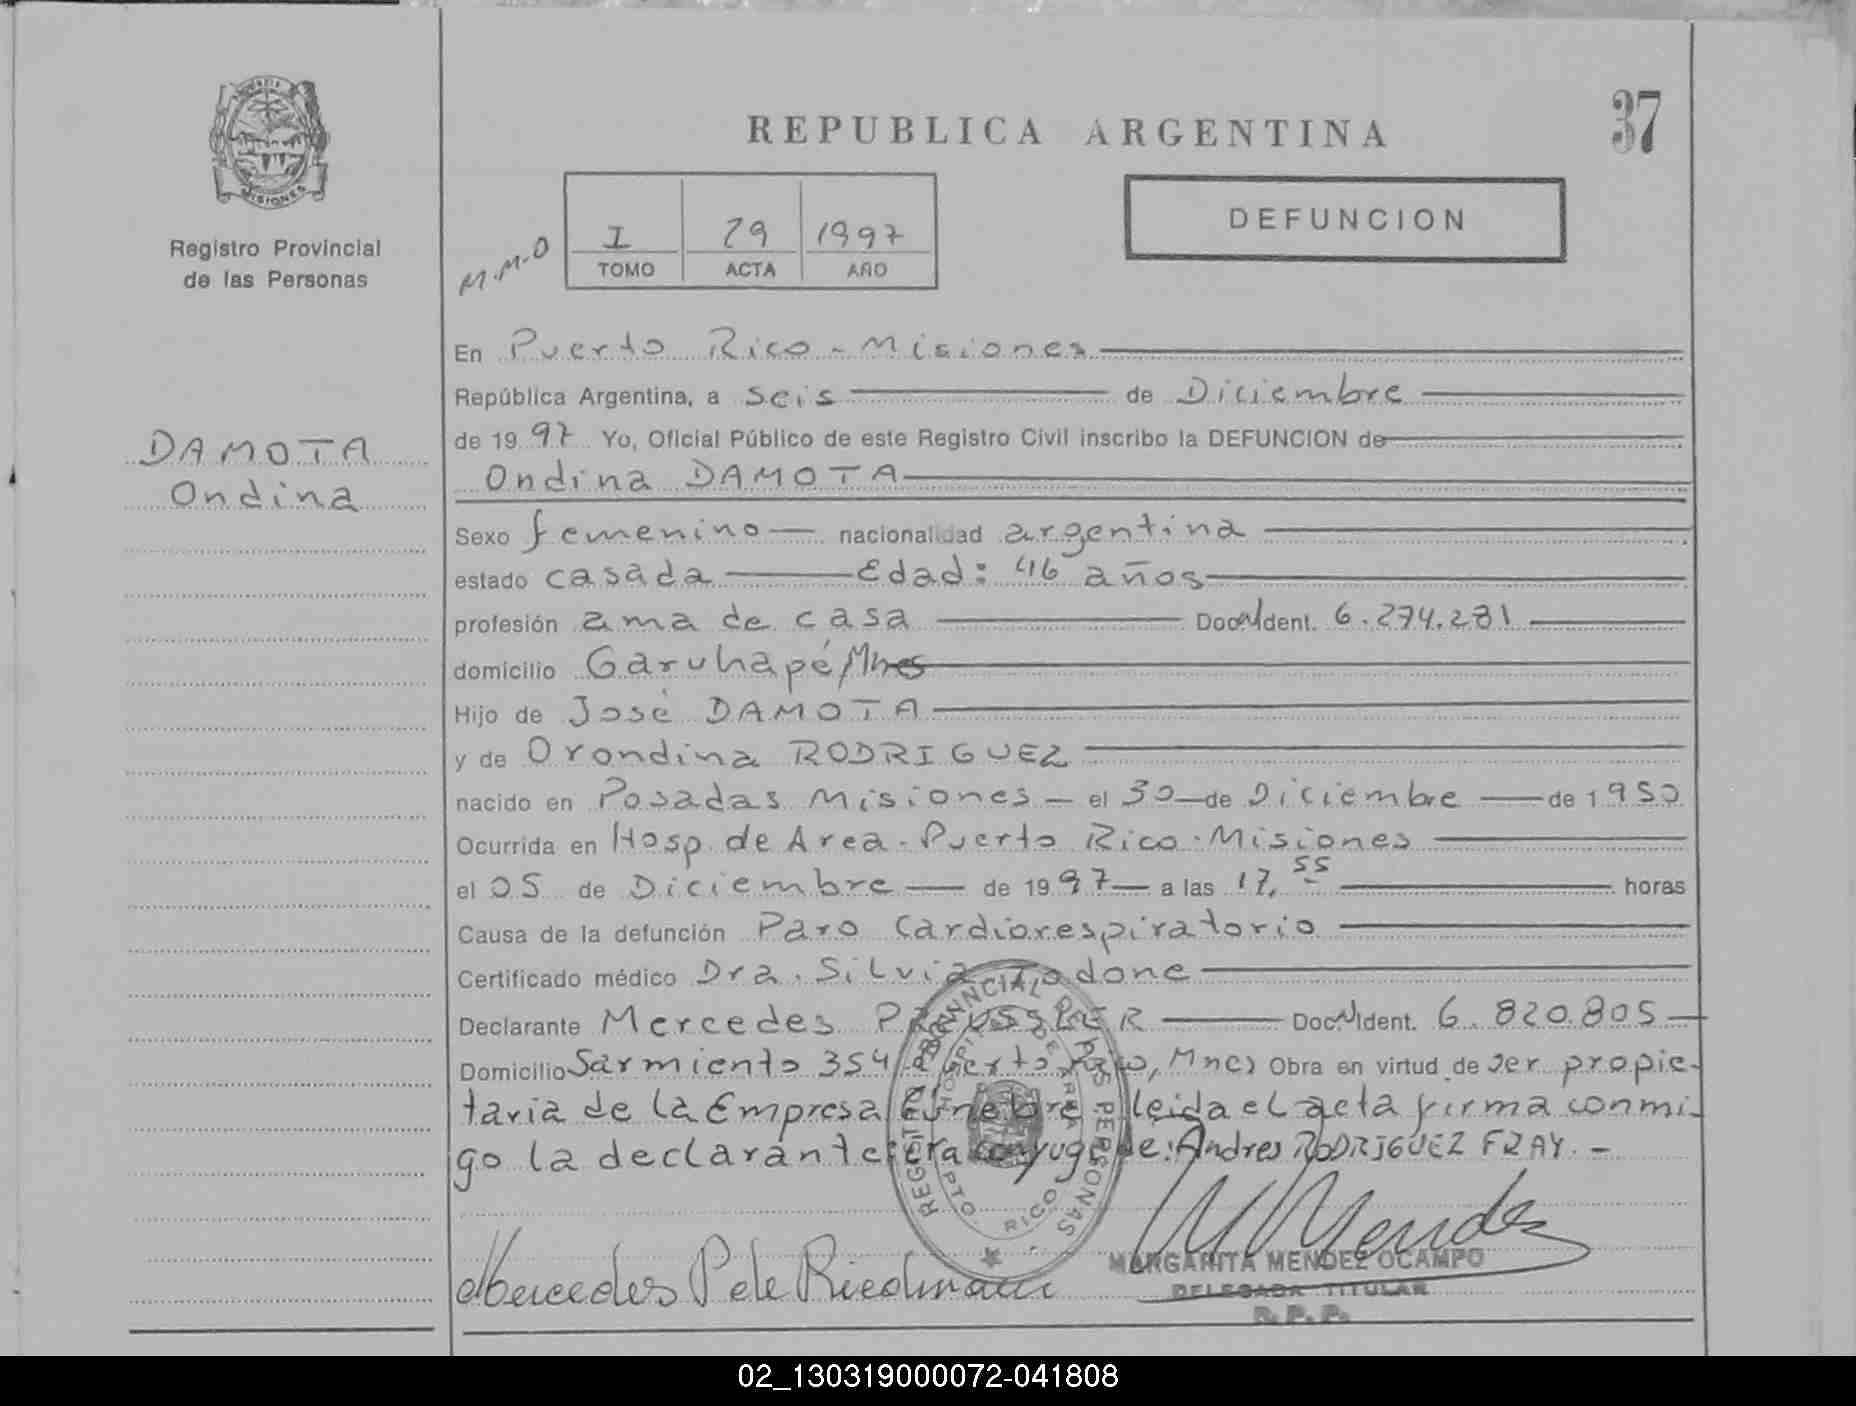 37
REPUBLICA ARGENTINA
MISIONES
Registro Provincial
de las Personas
M.M.O
I 29 1997
TOMO ACTA AÑO
DEFUNCION
DAMOTA
Ondina
En Puerto Rico - Misiones
República Argentina, a seis de Diciembre
de 1997 Yo, Oficial Público de este Registro Civil inscribo la DEFUNCION de
Ondina DAMOTA
Sexo femenino nacionalidad argentina
estado casada Edad: 46 años
profesión ama de casa Doc. Ident. 6.274.281
domicilio Garuhapé, Mnes
Hijo de José DAMOTA
y de Orondina RODRIGUEZ
nacido en Posadas Misiones - el 30 de Diciembre de 1950
Ocurrida en Hosp. de Area - Puerto Rico - Misiones
el 05 de Diciembre de 1997 a las 17,55 horas
Causa de la defunción Paro Cardiorespiratorio
Certificado médico Dra. Silvia Todone
Declarante Mercedes Doc. Ident. 6.820.805
Domicilio Sarmiento 354 Puerto Rico, Mnes Obra en virtud de ser propie-
taria de la Empresa Fúnebre leida el acta firma conmi-
go la declarante: era conyuge de: Andres RODRIGUEZ FRAY. -
REGISTRO PROVINCIAL DE LAS PERSONAS
HOSPITAL DE AREA
PTO. RICO
Mercedes Riedmaier
M Mendez
MARGARITA MENDEZ OCAMPO
DELEGADA TITULAR
R. P. P.
02_130319000072-041808